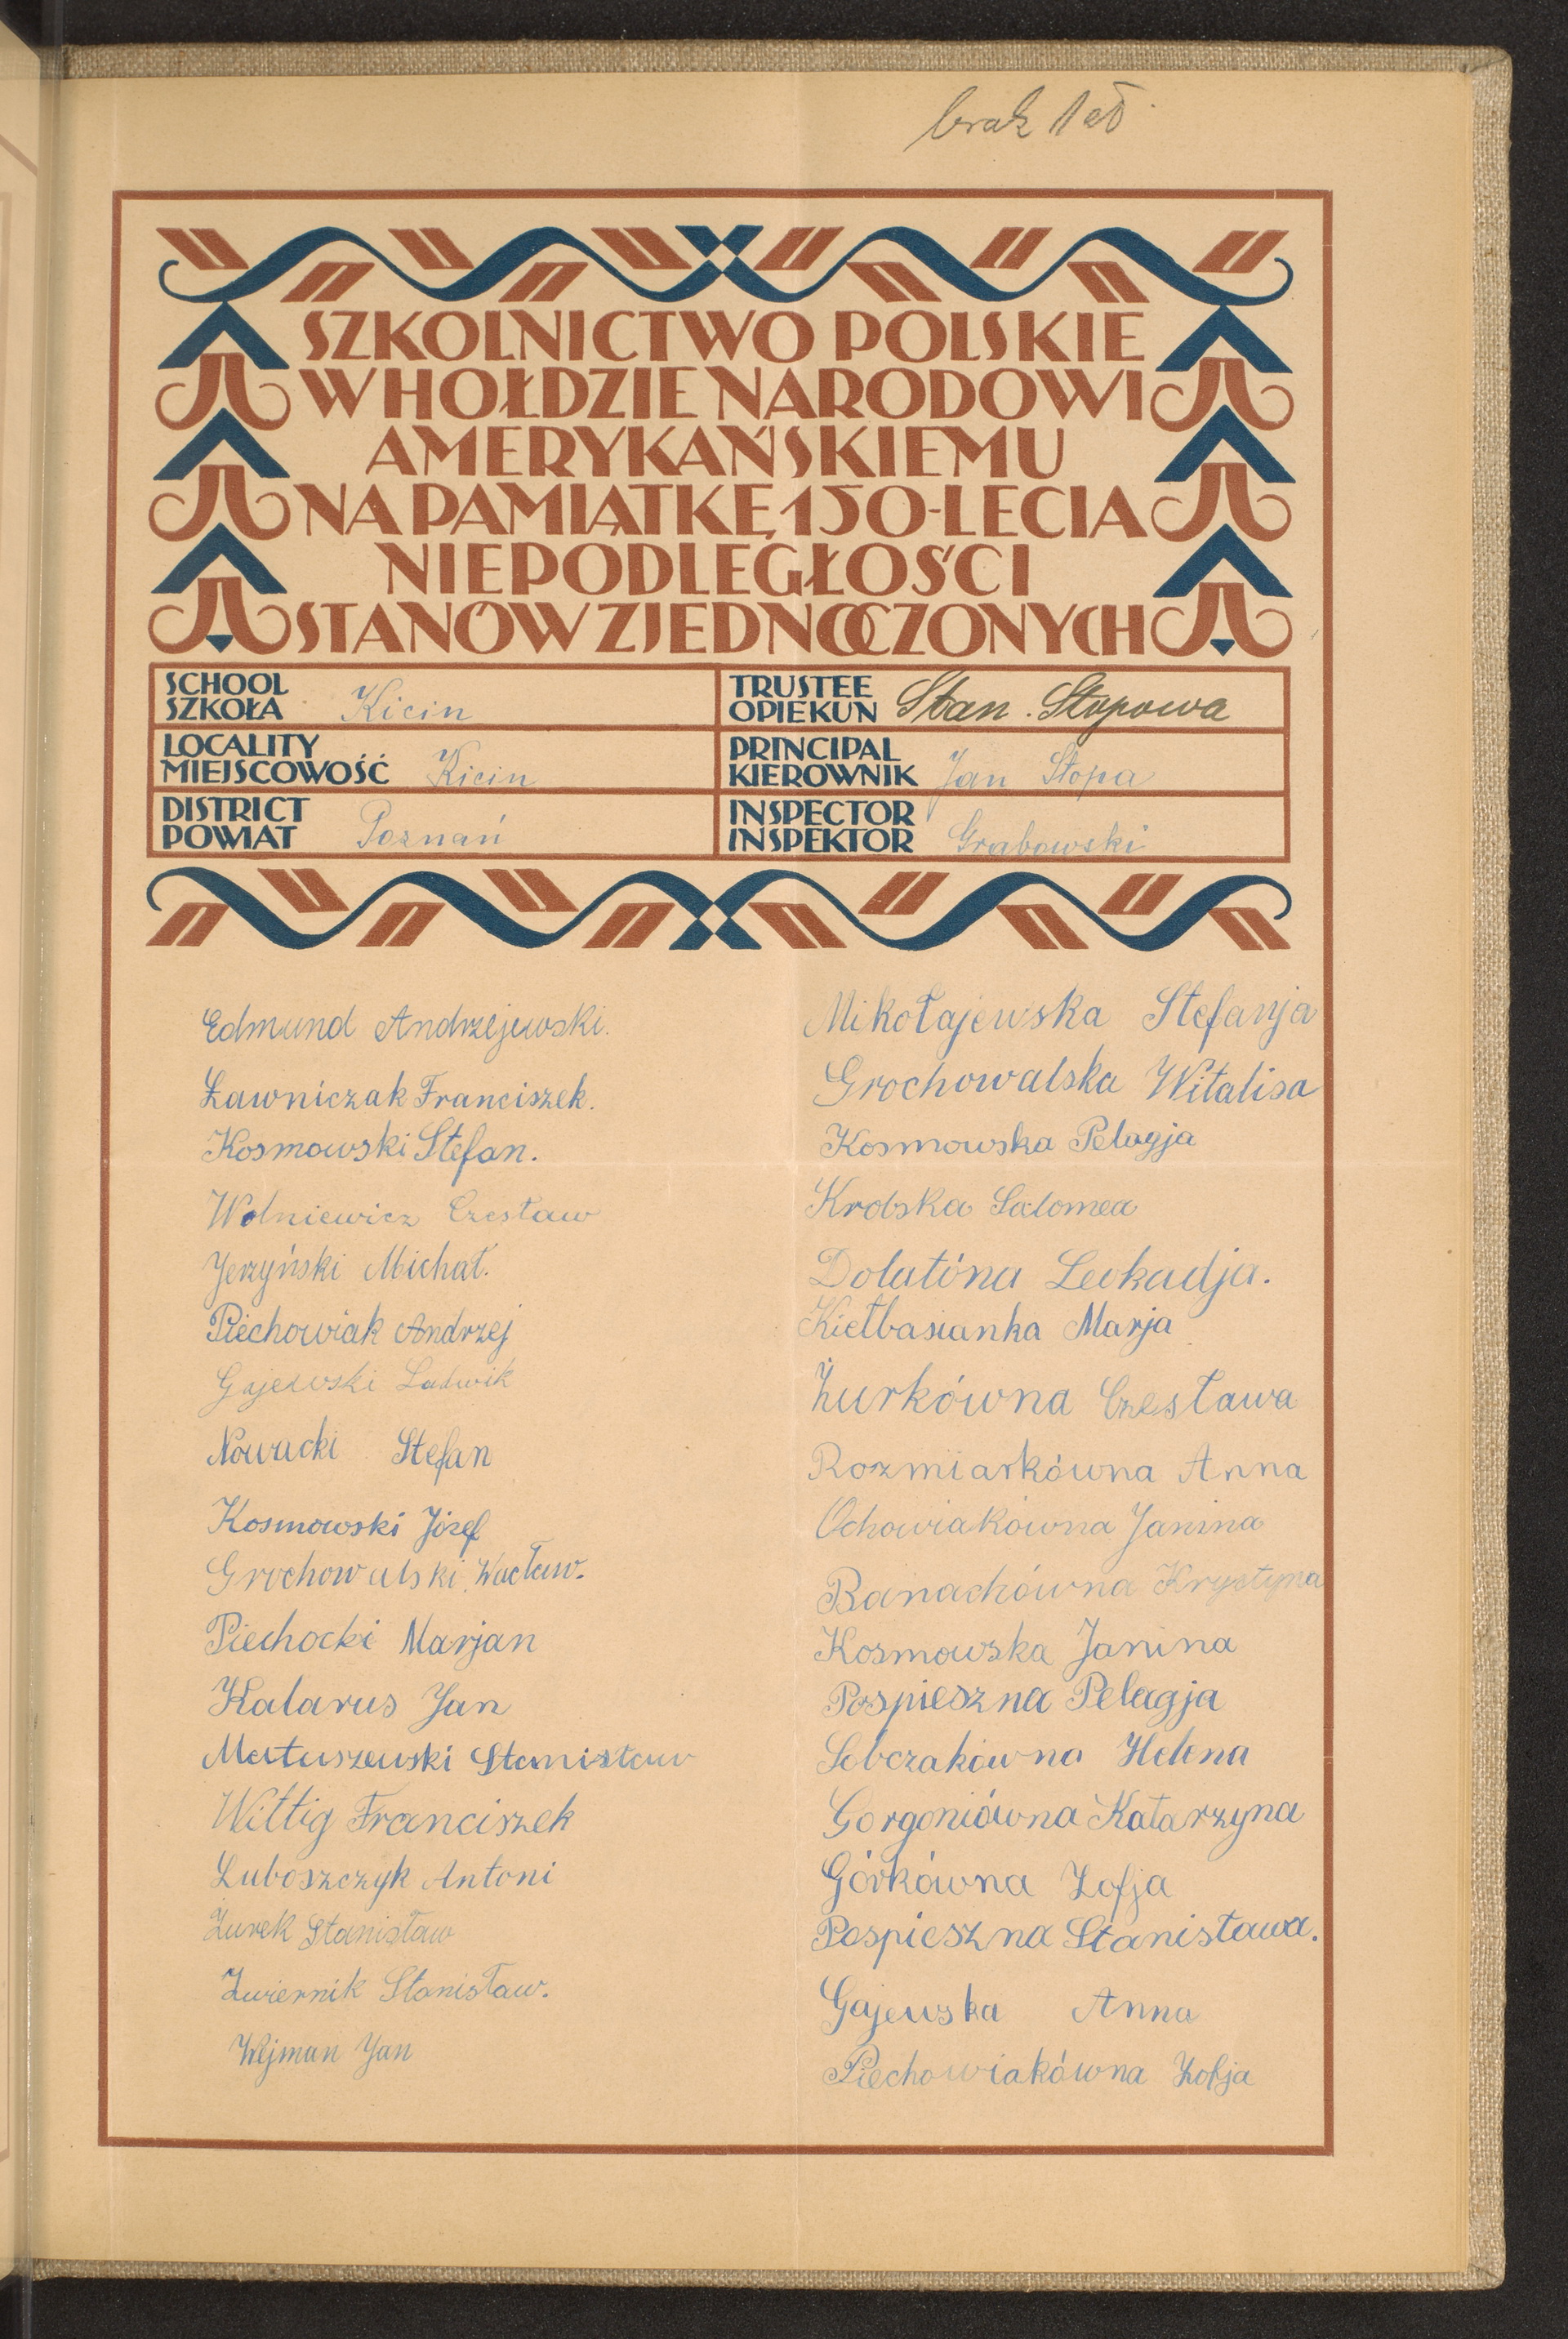 brak 1 zł
SZKOLNICTWO POLSKIE
W HOŁDZIE NARODOWI
AMERYKAŃSKIEMU
NA PAMIĄTKĘ 150-LECIA
NIEPODLEGŁOŚCI
STANÓW ZJEDNOCZONYCH
SCHOOL
SZKOŁA Kicin
TRUSTEE
OPIEKUN Stan. Stopowa
LOCALITY
MIEJSCOWOŚĆ Kicin
PRINCIPAL
KIEROWNIK Jan Stopa
DISTRICT
POWIAT Poznań
INSPECTOR
INSPEKTOR Grabowski
Edmund Andrzejewski.
Ławniczak Franciszek.
Kosmowski Stefan.
Wolniewicz Czesław
Jerzyński Michał.
Piechowiak Andrzej
Gajewski Ludwik
Nowacki Stefan
Kosmowski Józef
Grochowalski Wacław.
Piechocki Marjan
Kalarus Jan
Matuszewski Stanisław
Wittig Franciszek
Luboszczyk Antoni
Żurek Stanisław
Zwiernik Stanisław.
Wejman Jan
Mikołajewska Stefanja
Grochowalska Witalisa
Kosmowska Pelagja
Krobska Salomea
Dolatóna Leokadja.
Kiełbasianka Marja
Żurkówna Czesława
Rozmiarkówna Anna
Ochowiakówna Janina
Banachówna Krystyna
Kosmowska Janina
Pospieszna Pelagja
Sobczakówna Helena
Gorgoniówna Katarzyna
Górkówna Zofja
Pospieszna Stanisława.
Gajewska Anna
Piechowiakówna Zofja